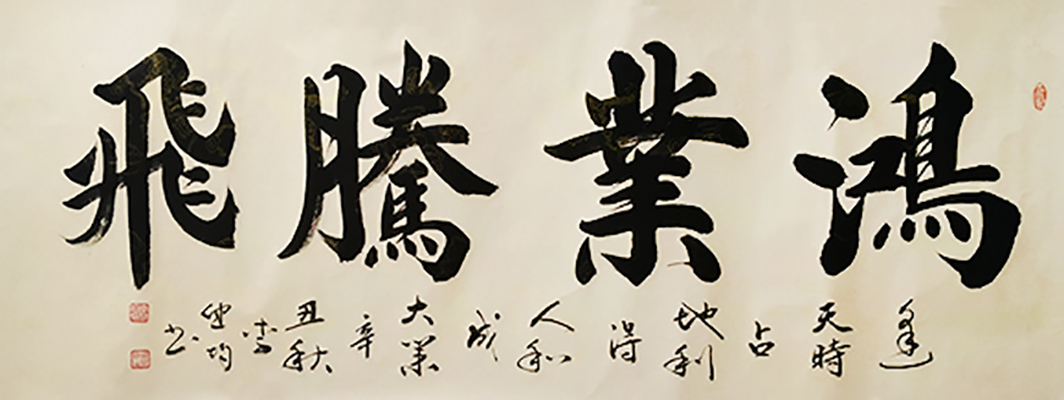 鴻業騰飛
逢天時占地利得人和成大業辛丑秋李均书